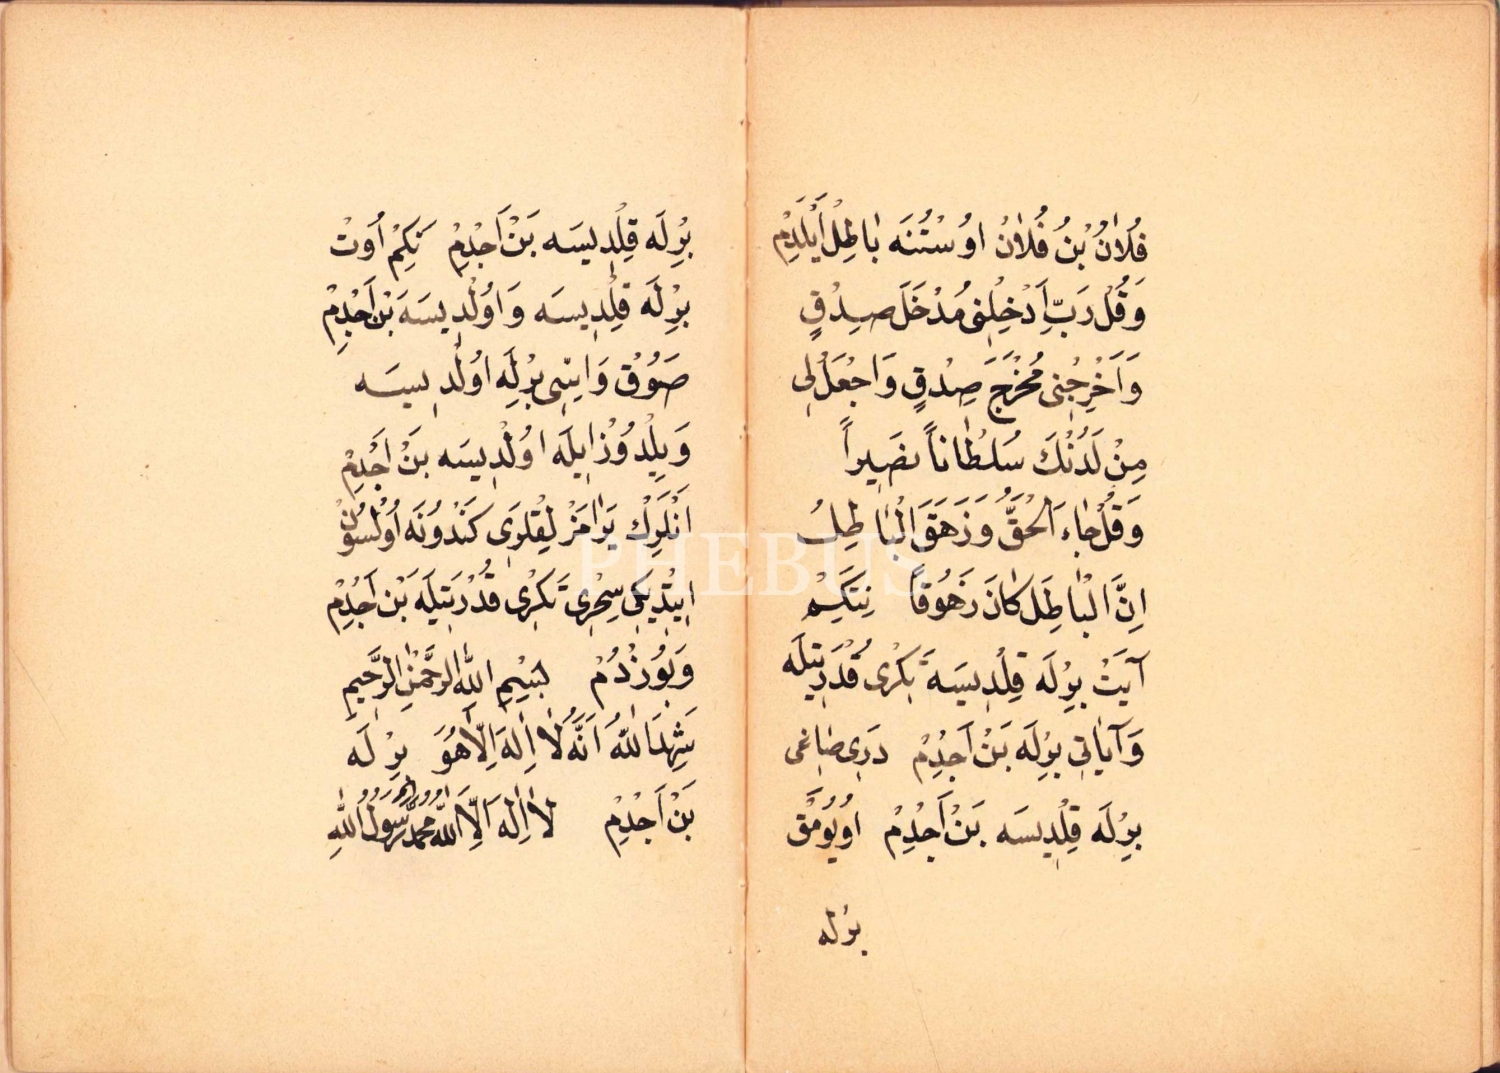 فُلَانُ بْنُ فُلَانْ اوُسْتُنَه بَاطِلْ أَيْلَدِمْ
وَقُلْ رَبِّ اَدْخِلْنِى مُدْخَلَ صِدْقٍ
وَاَخْرِجْنِى مُخْرَجَ صِدْقٍ وَاجْعَلْ لِى
مِنْ لَدُنْكَ سُلْطَاناً نَصِيراً
وَقُلْ جَاءَ الْحَقُّ وَزَهَقَ الْبَاطِلُ
اِنَّ الْبَاطِلَ كَانَ زَهُوقاً نِتَكِمْ
آيَتْ بِرْلَه قِلْدِيسَه تَكْرِى قُدْرَتِيلَه
وَآيَاتِى بِرْلَه بَنْ اَجْدِمْ دَرِى صَاغِى
بِرْلَه قِلْدِيسَه بَنْ اَجْدِمْ اوُيُومَقْ
بِرْله
بِرْلَه قِلْدِيسَه بَنْ اَجْدِمْ نَكِمْ اُوتْ
بِرْلَه قِلْدِيسَه وَاوُلْدِيسَه بَنْ اَجْدِمْ
صَوُوقْ وَايسِّى بِرْلَه اوُلْدِيسَه
وَيِلْدُوُزْ ايلَه اوُلْدِيسَه بَنْ اَجْدِمْ
اَنْلَرِكْ يَرَامَزْلِقْلَرِى كَنْدُونَه اوُلْسُوُنْ
اِيتْدِيكِى سِحْرِى تَكْرِى قُدْرَتِيلَه بَنْ اَجْدِمْ
وَبوُزْدُمْ بِسْمِ اللّٰهِ الرَّحْمٰنِ الرَّحِيمِ
شَهِدَ اللّٰهُ اَنَّهُ لَا اِلٰهَ اِلَّا هُوَ بِرْلَه
بَنْ اَجْدِمْ لَا اِلٰهَ اِلَّا اللّٰهُ مُحَمَّدٌ رَسُولُ اللّٰهِ
PHEBUS